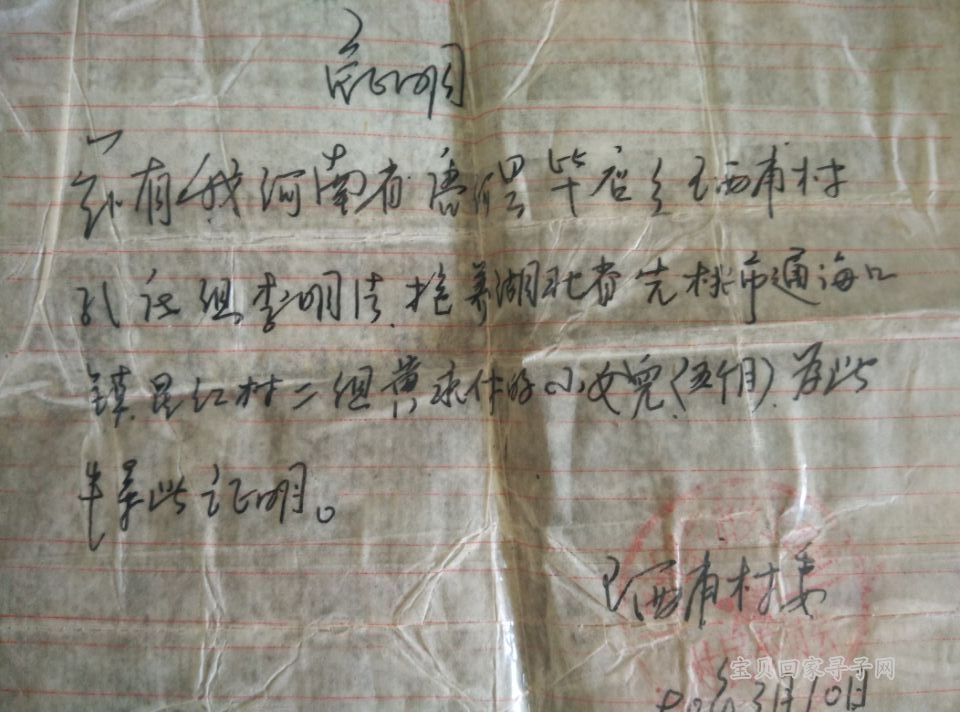 证明
兹有我河南省唐河县毕店乡王西甫村
孔庄组李明法.抱养湖北省先桃市通海口
镇昌红村二组黄永作的小女儿(五个月).为此
专写此证明。
王西甫村委
3月10日
宝贝回家寻子网